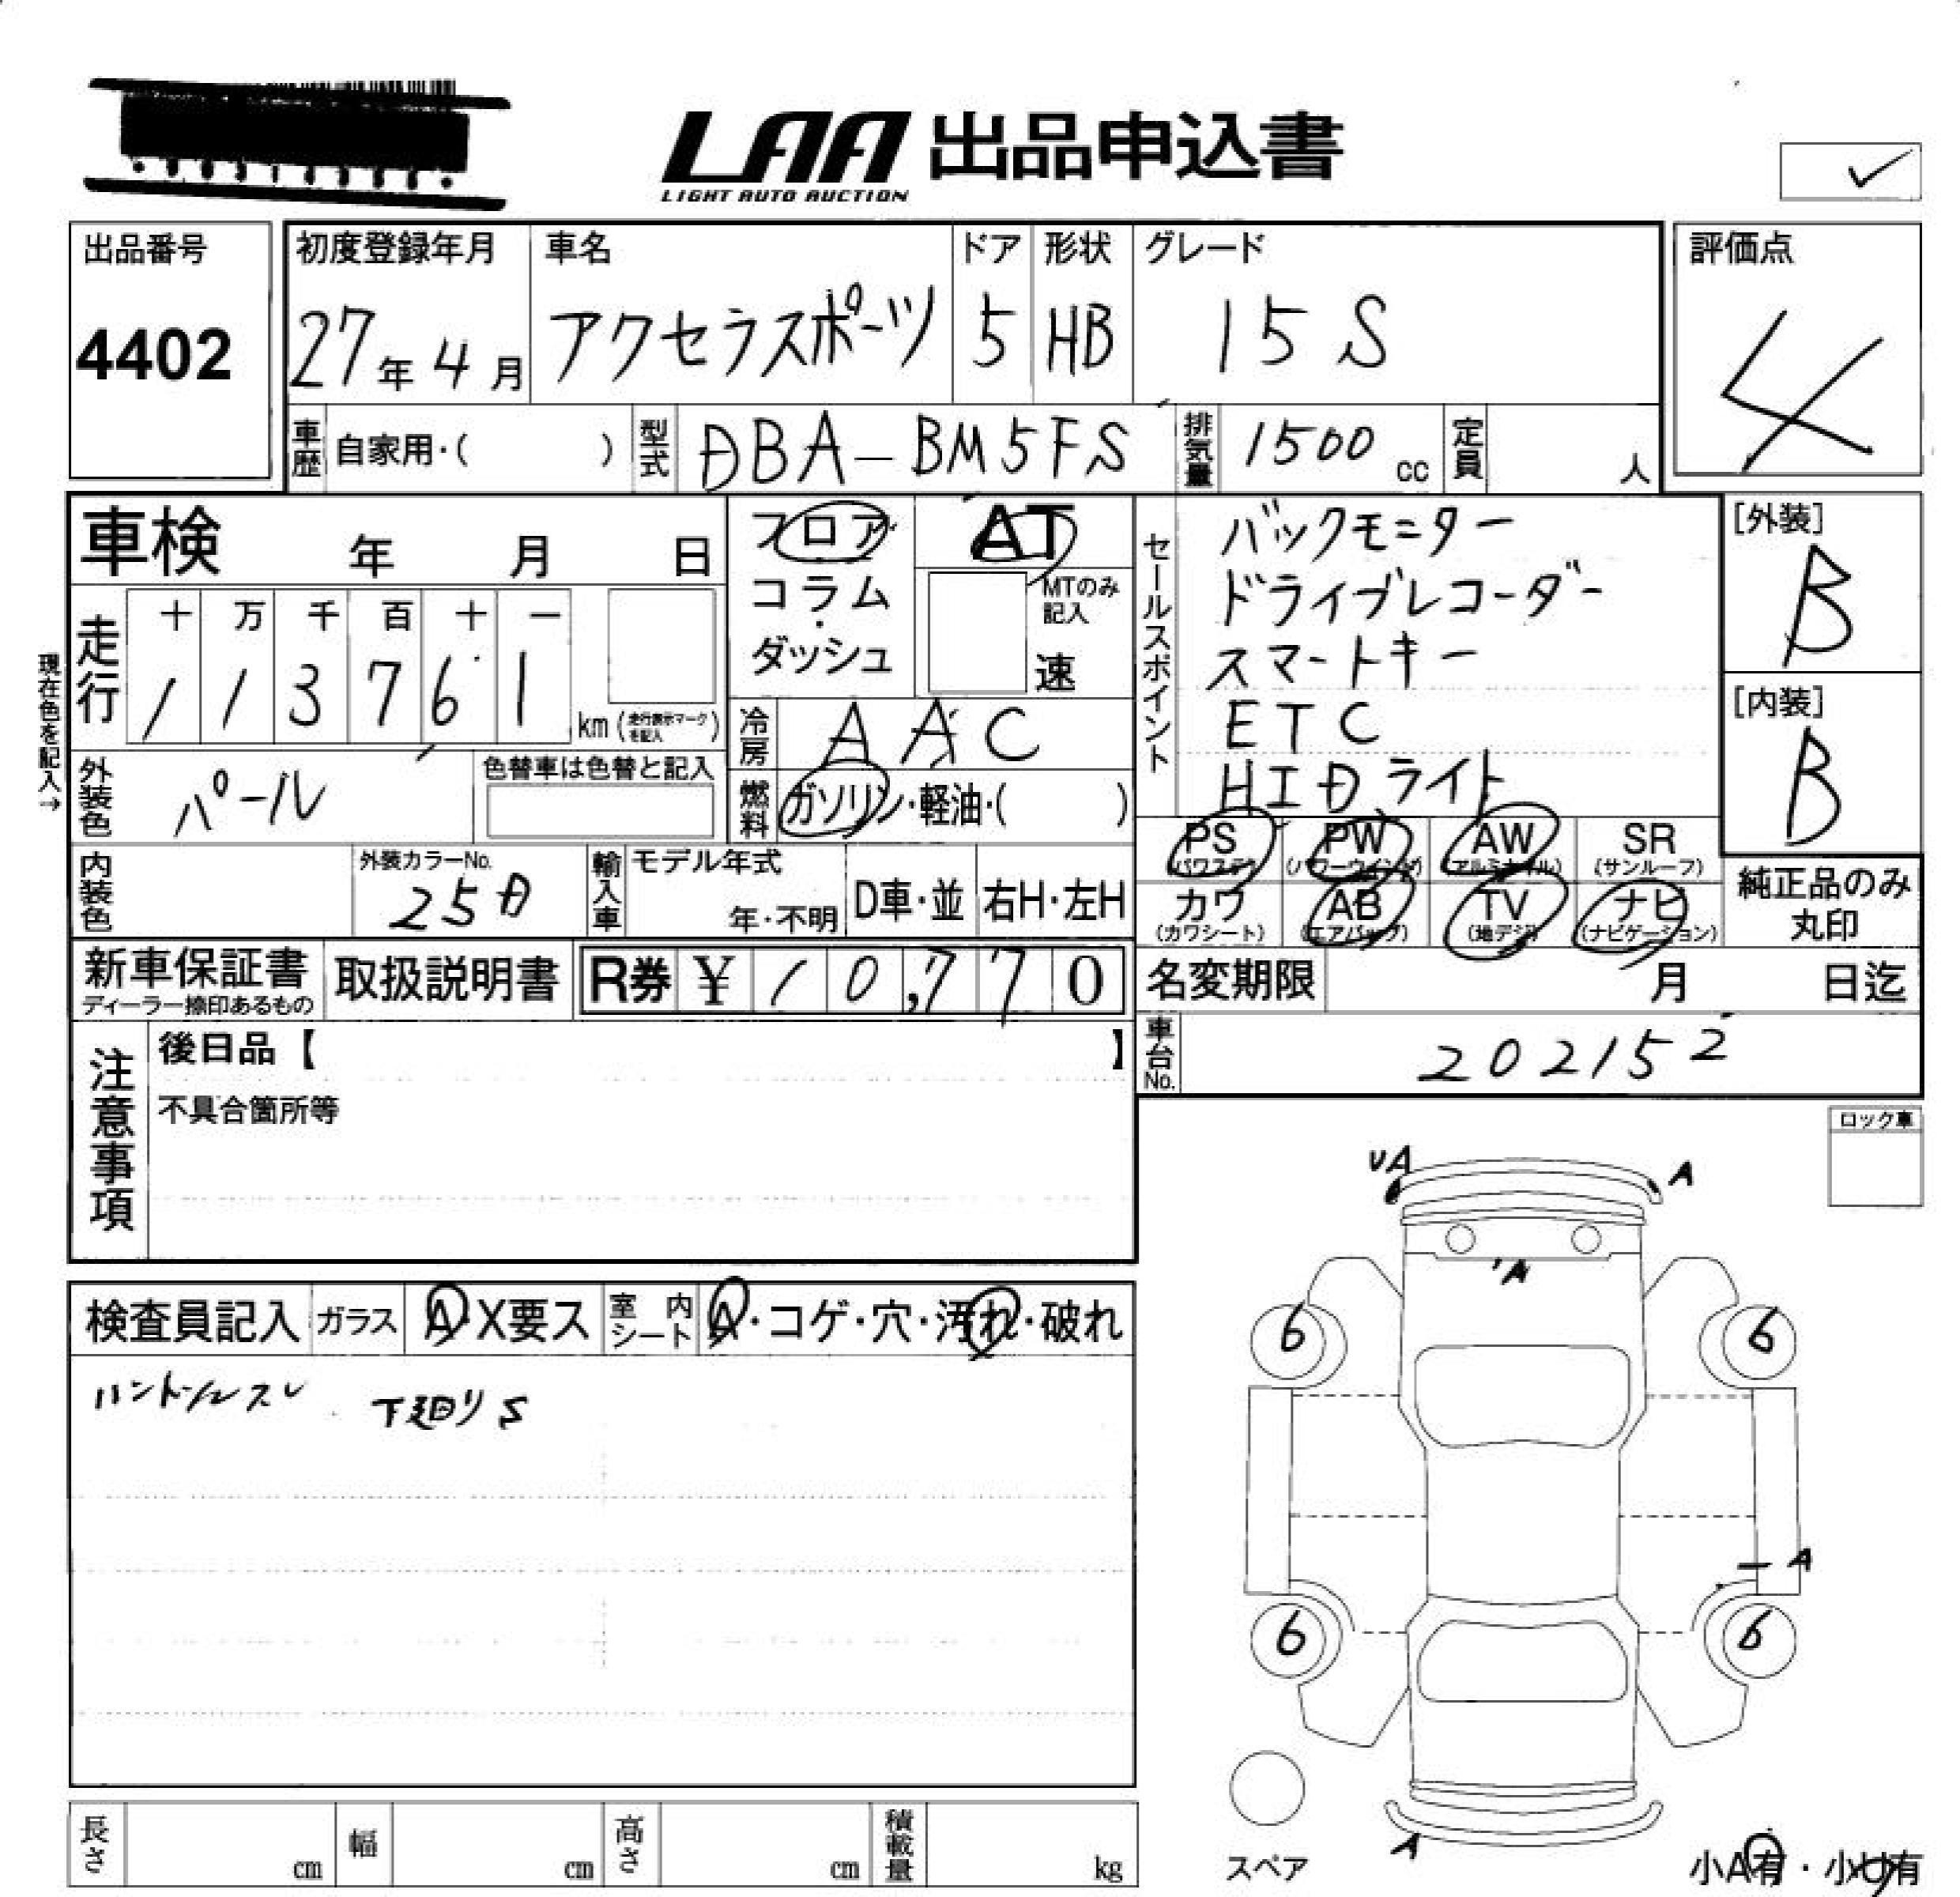 LAA 出品申込書
LIGHT AUTO AUCTION
出品番号
4402
初度登録年月
27年4月
車名
アクセラスポーツ
ドア
5
形状
HB
グレード
15S
評価点
4
車歴 自家用・( )
型式 DBA-BM5FS
排気量 1500cc
定員 人
車検 年 月 日
フロア
コラム
・
ダッシュ
AT
MTのみ
記入
速
セールスポイント
バックモニター
ドライブレコーダー
スマートキー
ETC
HIDライト
[外装]
B
[内装]
B
現在色を記入→
走行
十 万 千 百 十 一
1 1 3 7 6 1
km (走行表示マークを記入)
冷房 AAC
外装色 パール
色替車は色替と記入
燃料 ガソリン・軽油・( )
PS (パワステ)
PW (パワーウインドウ)
AW (アルミホイル)
SR (サンルーフ)
カワ (カワシート)
AB (エアバッグ)
TV (地デジ)
ナビ (ナビゲーション)
純正品のみ
丸印
内装色
外装カラーNo.
25D
輸入車
モデル年式
年・不明
D車・並
右H・左H
新車保証書
ディーラー捺印あるもの
取扱説明書
R券 ¥ 10,770
名変期限 月 日迄
車台No. 202152
注意事項
後日品【 】
不具合箇所等
ロック車
UA
A
A
検査員記入
ガラス A X要ス
室内シート A・コゲ・穴・汚れ・破れ
ハンドルスレ 下廻りS
6
6
A
6
6
A
スペア
小A有・小U有
長さ cm
幅 cm
高さ cm
積載量 kg